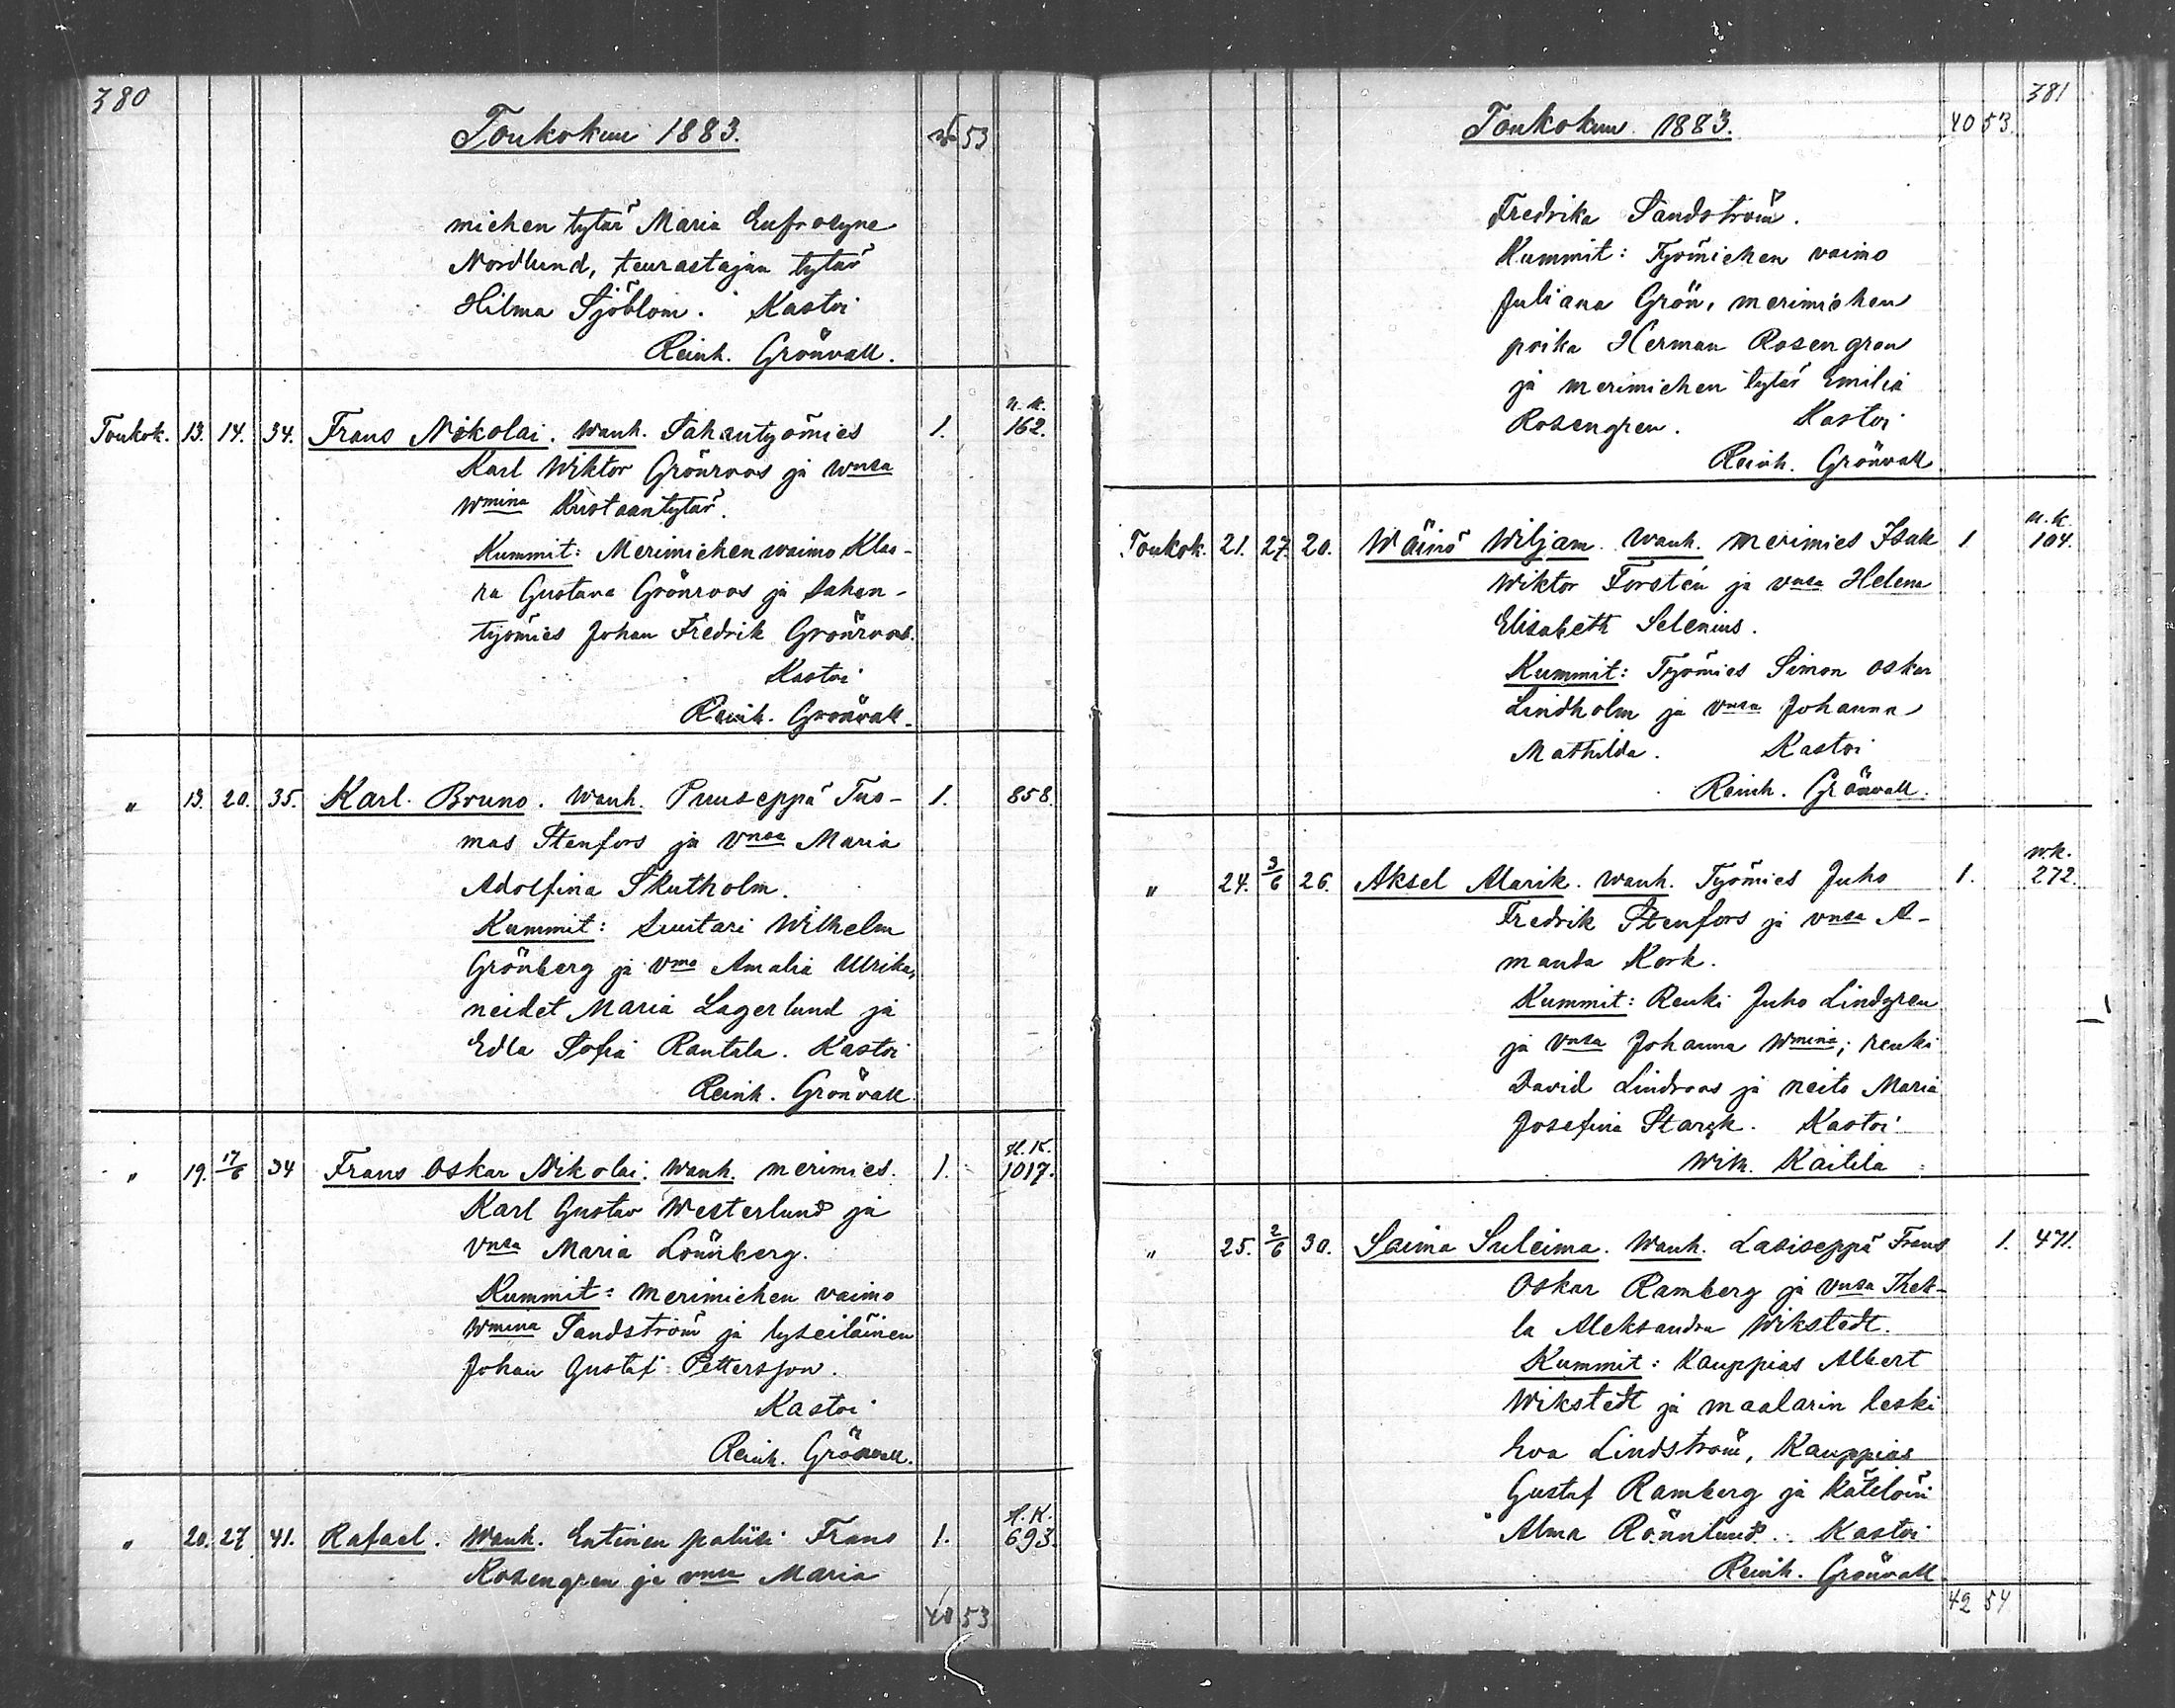 380
Toukokuu 1883.
53
miehen tytär Maria Eufrosyne
Nordlund, teurastajan tytär
Hilma Sjöblom. Kastoi
Reinh. Grönvall.
Toukok. 13. 14. 34. Frans Nikolai. Wanh. Sahantyömies 1. 162.
Karl Wiktor Grönroos ja wnsa
Wmina Kustaantytär.
Kummit: Merimiehen waimo Klaa-
ra Gustava Grönroos ja sahan-
työmies Johan Fredrik Grönroos.
Kastoi
Reinh. Grönvall.
" 13. 20. 35. Karl Bruno. Wanh. Puuseppä Tuo- 1. 858.
mas Stenfors ja vnsa Maria
Adolfina Skutholm.
Kummit: Suutari Wilhelm
Grönberg ja vmo Amalia Ulrika,
neidet Maria Lagerlund ja
Edla Sofia Rantala. Kastoi
Reinh. Grönvall
" 19. 17/6 34 Frans Oskar Nikolai. Wanh. merimies 1. 1017.
Karl Gustav Westerlund ja
vnsa Maria Lönnberg.
Kummit: merimiehen vaimo
Wmina Sandström ja lyseiläinen
Johan Gustaf Pettersson.
Kastoi
Reinh. Grönvall.
" 20. 27. 41. Rafael. Wanh. Entinen poliisi Frans 1. 693.
Rosengren ja vnsa Maria
40 53
381
Toukokuu 1883.
40 53
Fredrika Sandström.
Kummit: Työmiehen vaimo
Juliana Grön, merimiehen
poika Herman Rosengren
ja merimiehen tytär Emilia
Rosengren. Kastoi
Reinh. Grönvall
Toukok. 21. 27. 20. Wäinö Wiljam. Wanh. merimies Isak 1 104.
Wiktor Forstén ja vnsa Helena
Elisabeth Selenius.
Kummit: Työmies Simon Oskar
Lindholm ja vnsa Johanna
Mathilda. Kastoi
Reinh. Grönvall.
" 24. 3/6 26. Aksel Alarik. Wanh. Työmies Juho 1. 272.
Fredrik Stenfors ja vnsa A-
manda Kork.
Kummit: Renki Juho Lindgren
ja vnsa Johanna Wmina; renki
David Lindroos ja neito Maria
Josefina Starck. Kastoi
Wilh. Kaitila
" 25. 2/6 30. Saima Suleima. Wanh. Lasiseppä Frans 1. 471.
Oskar Ramberg ja vnsa Thek-
la Aleksandra Wikstedt.
Kummit: Kauppias Albert
Wikstedt ja maalarin leski
Eva Lindström, Kauppias
Gustaf Ramberg ja kätilöin
Alma Rönnlund. Kastoi
Reinh. Grönvall
42 54